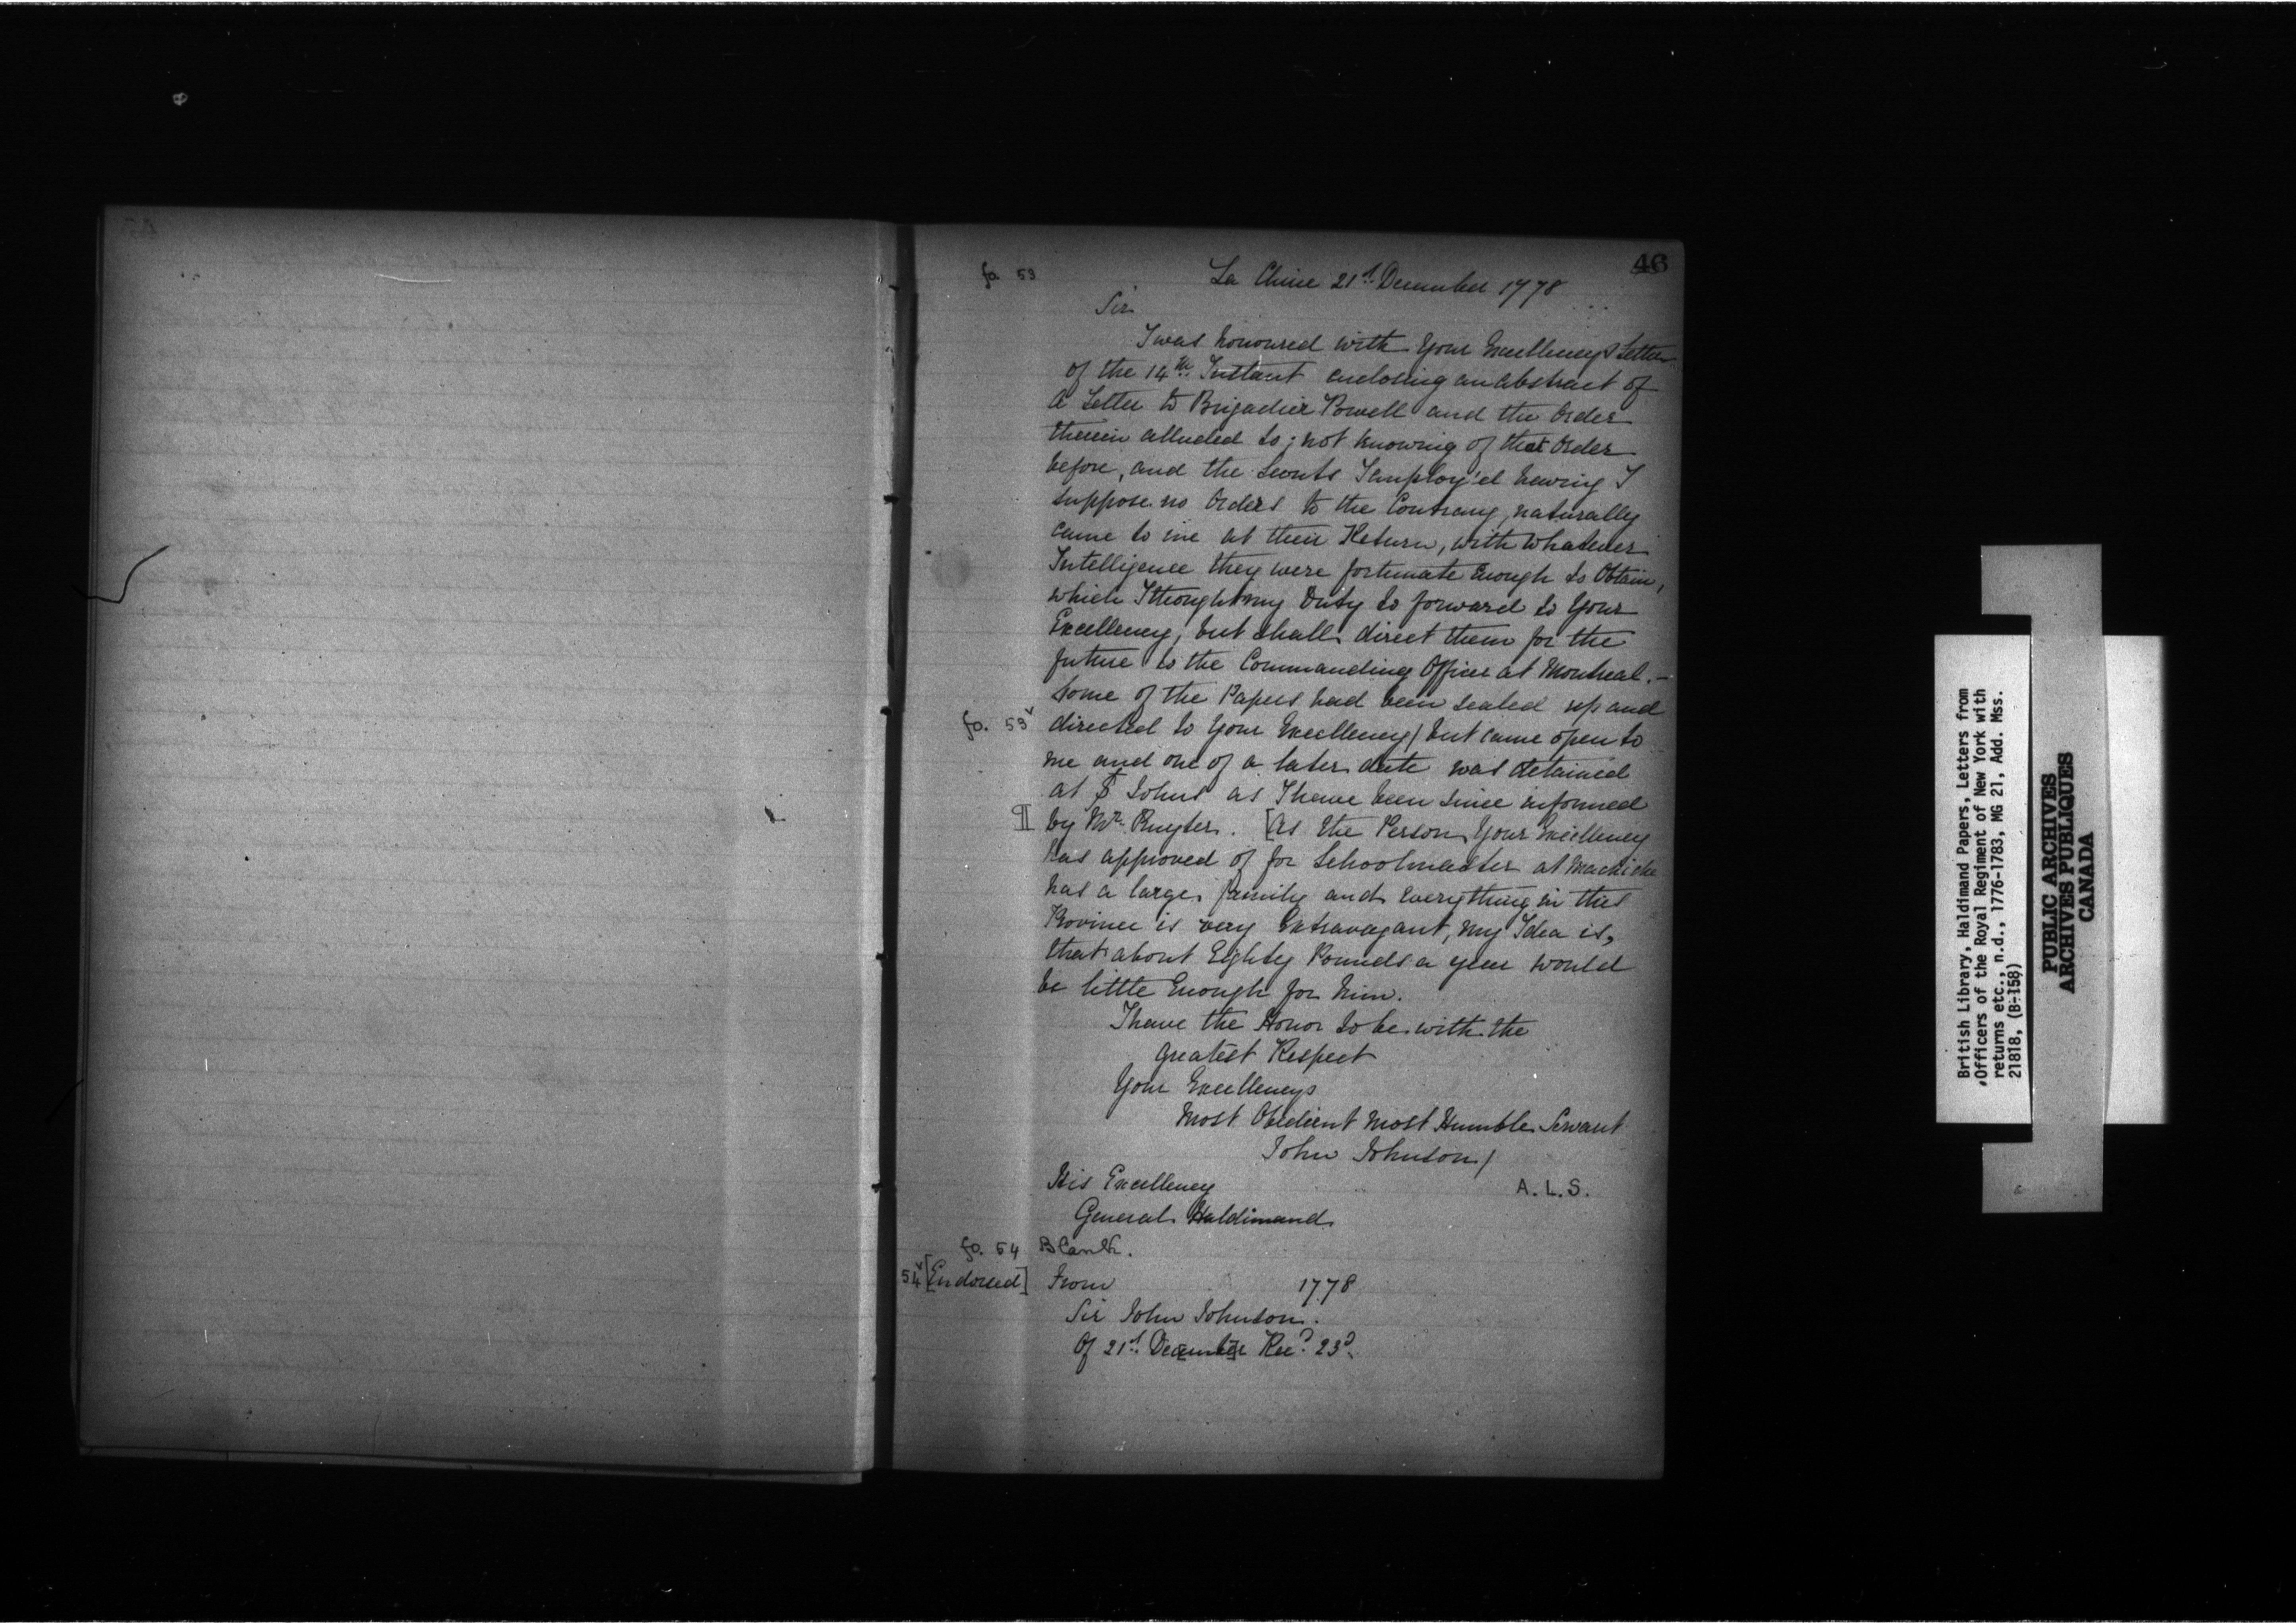 46
fo. 53
La Chine 21st. December 1778
Sir
I was honoured with Your Excellencys Letter
of the 14th. Instant enclosing an abstract of
a Letter to Brigadier Powell and the Order
therein alluded to; not knowing of that Order
before, and the Scouts I employ'd having I
suppose no Orders to the Contrary, naturally
came to me at their Return, with whatever
Intelligence they were fortunate Enough to Obtain,
which I thought my Duty to forward to Your
Excellency, but shall direct them for the
future to the Commanding Officer at Montreal.—
Some of the Papers had been sealed up and
fo. 53v directed to Your Excellency/ but came open to
me and one of a later date was detained
at St Johns as I have been since informed
¶ by Mr. Ruyter. [As the Person Your Excellency
has approved of for Schoolmaster at Machiche
has a large family and everything in this
Province is very Extravagant, my Idea is,
that about Eighty Pounds a year would
be little Enough for him.
I have the Honor to be with the
greatest Respect
Your Excellencys
Most Obedient Most Humble Servant
John Johnson/
His Excellency
A.L.S.
General Haldimand
fo. 54 Blank.
54v [Endorsed] From 1778
Sir John Johnson.
Of 21st. December Recd. 23d.
British Library, Haldimand Papers, Letters from
Officers of the Royal Regiment of New York with
returns etc., n.d., 1776-1783, MG 21, Add. Mss.
21818, (B-158)
PUBLIC ARCHIVES
ARCHIVES PUBLIQUES
CANADA